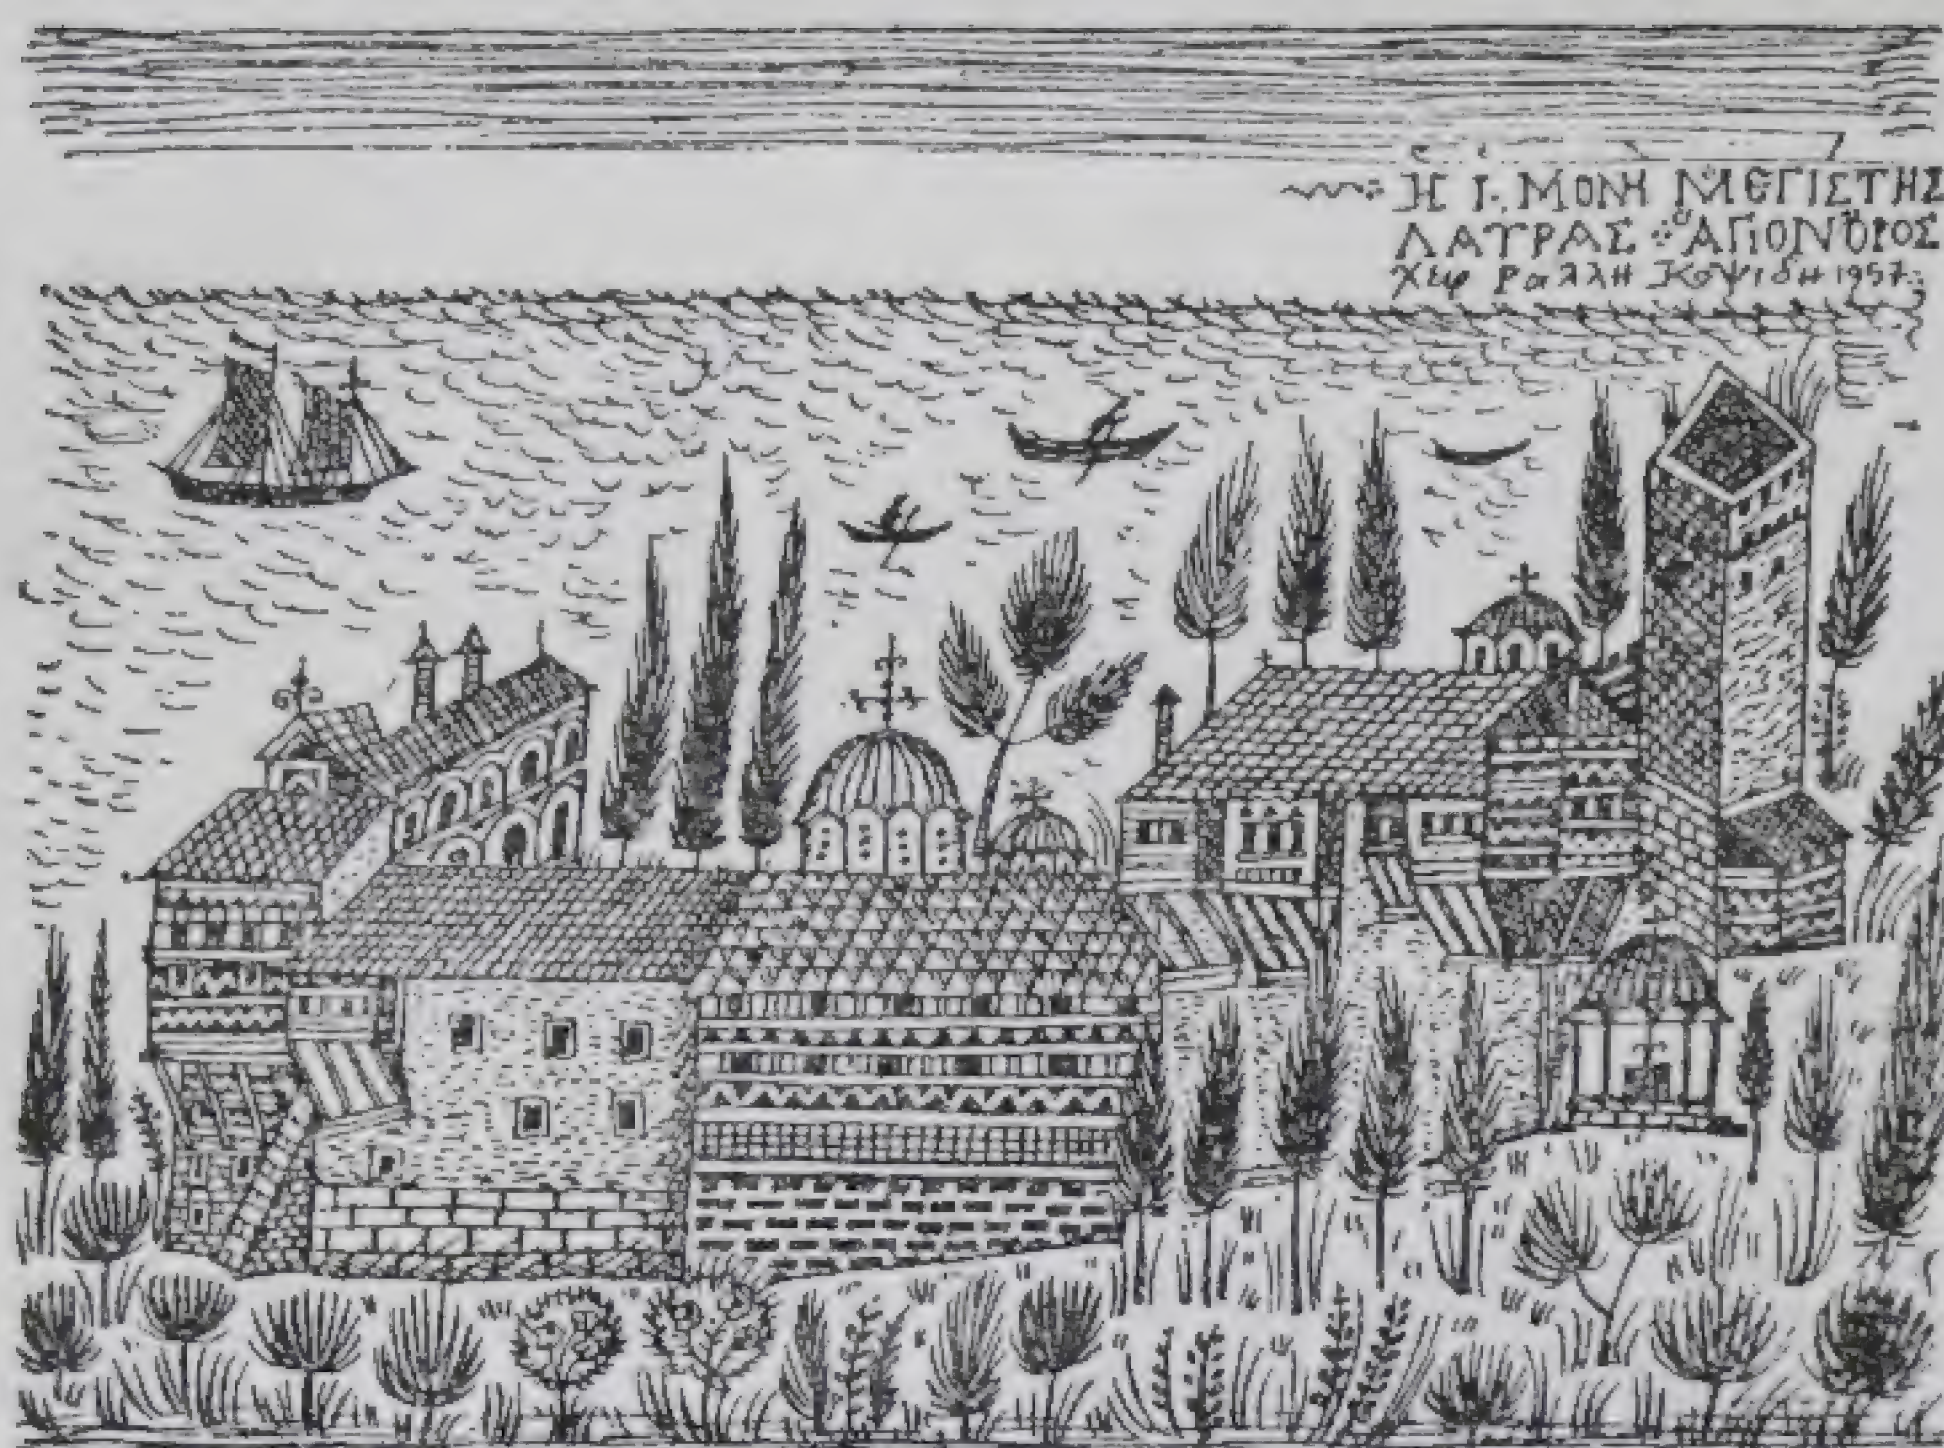 Ἡ Ἱ. ΜΟΝΗ ΜΕΓΙΣΤΗΣ
ΛΑΥΡΑΣ ΑΓΙΟΝ ΟΡΟΣ
χειρ Ραλλη Κοψιδη 1957